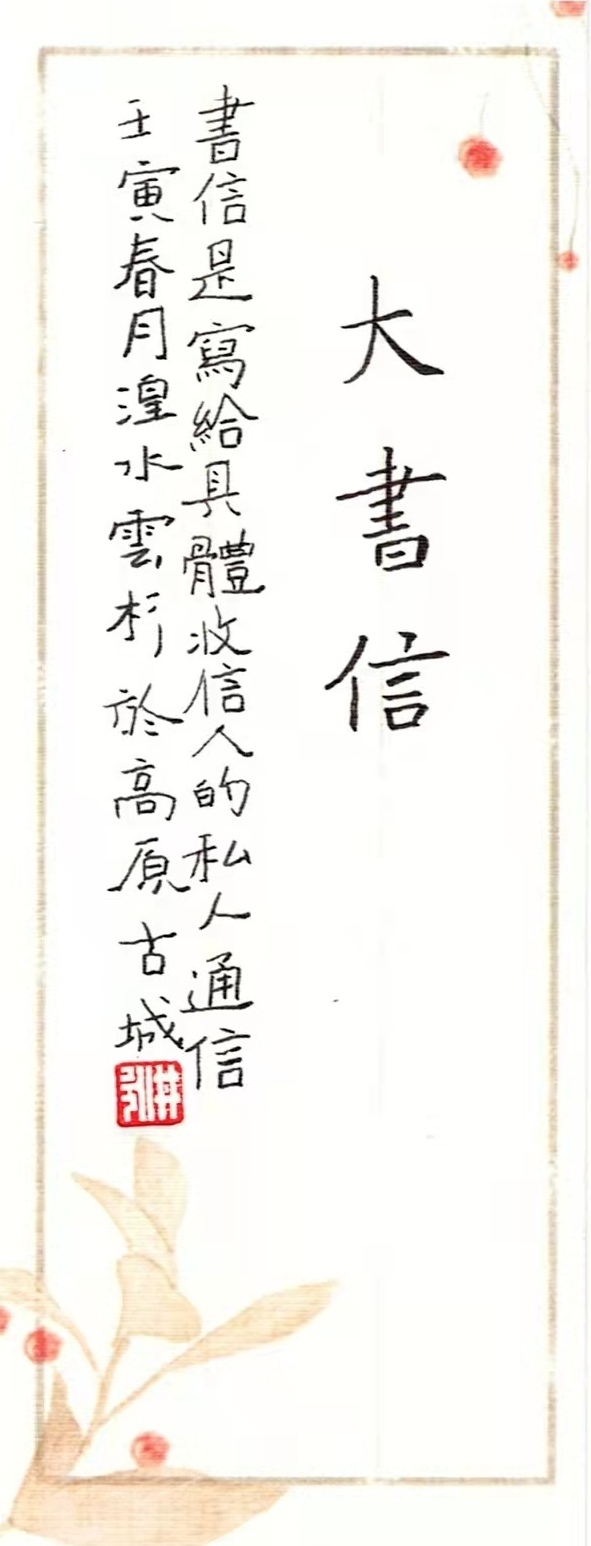 大書信
書信是寫給具體收信人的私人通信
壬寅春月湟水雲杉於高原古城